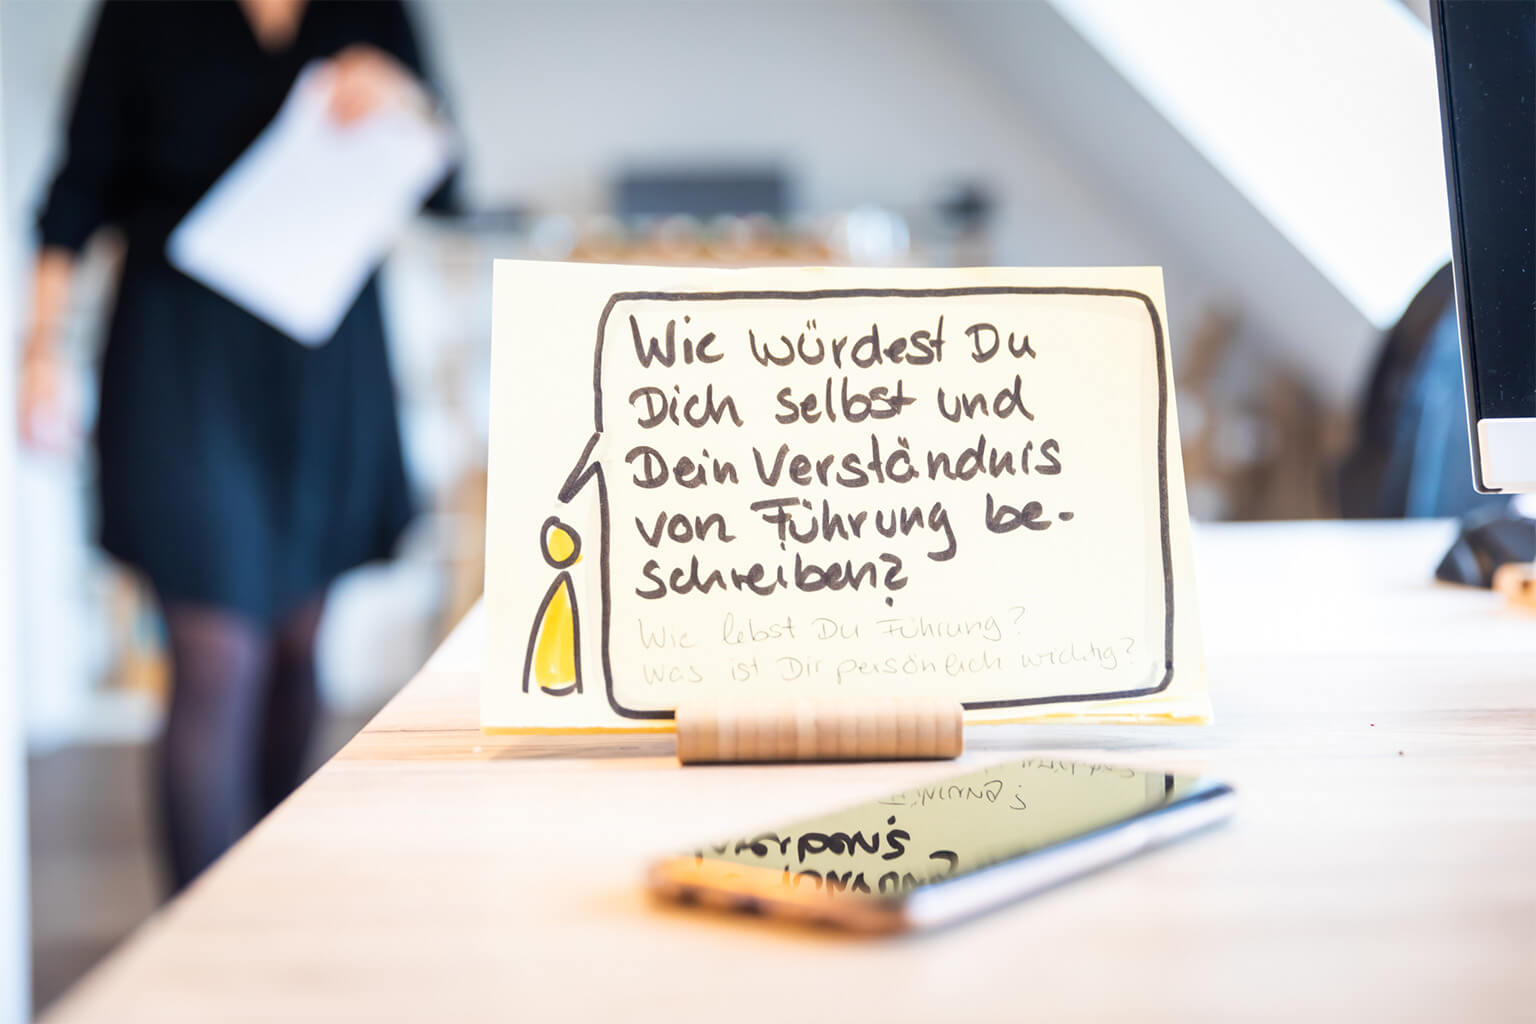 Wie würdest Du
Dich selbst und
Dein Verständnis
von Führung be-
schreiben?
Wie lebst Du Führung?
Was ist Dir persönlich wichtig?